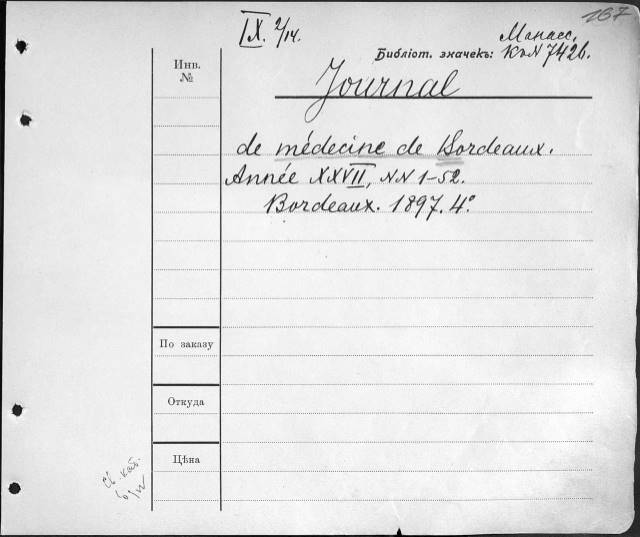 167
IX. 2/14.
Манасс.
Библіот. значекъ: К. N 7426.
Инв.
№
Journal
de médecine de Bordeaux.
Année XXVII, NN 1-52.
Bordeaux. 1897. 4°
По заказу
Откуда
Цѣна